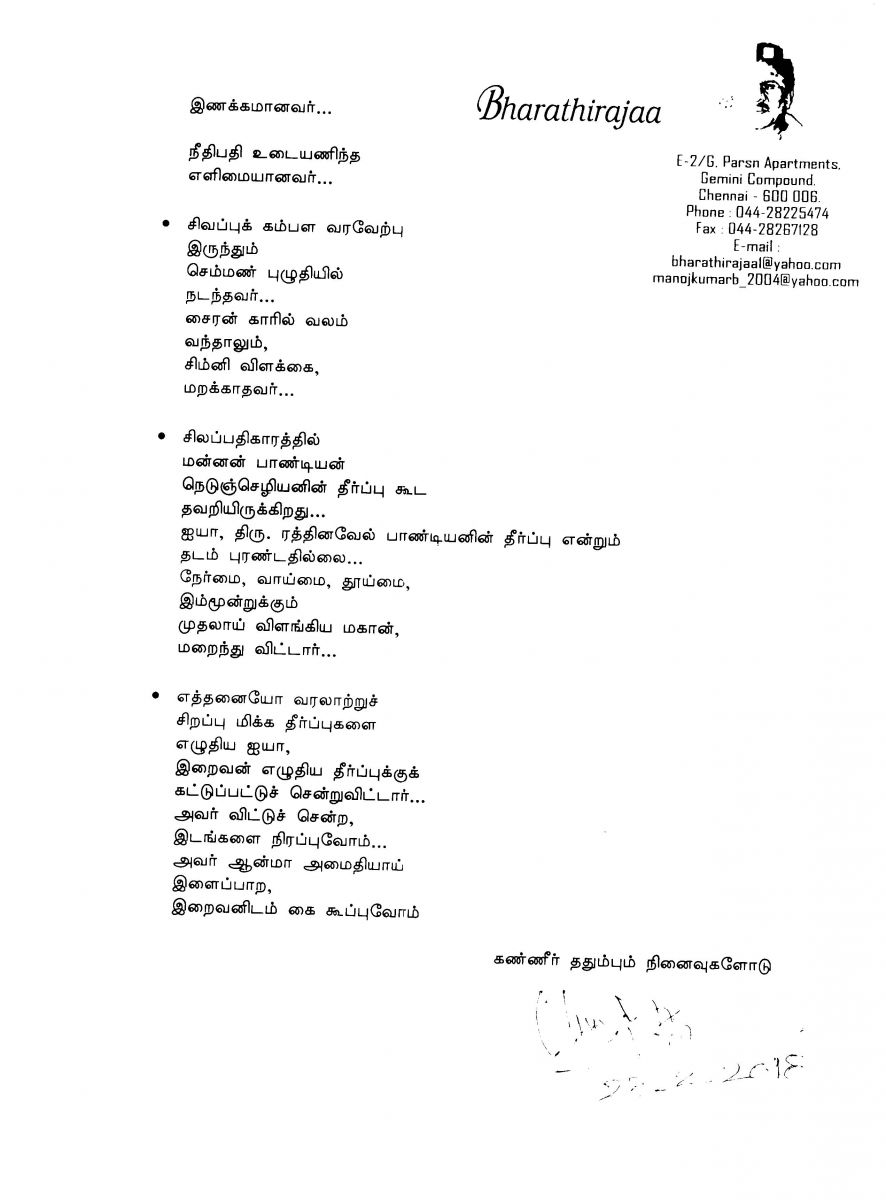 Bharathirajaa
E-2/G, Parsn Apartments,
Gemini Compound,
Chennai - 600 006.
Phone : 044-28225474
Fax : 044-28267128
E-mail :
bharathirajaal@yahoo.com
manojkumarb_2004@yahoo.com
இணக்கமானவர்...
நீதிபதி உடையணிந்த
எளிமையானவர்...
• சிவப்புக் கம்பள வரவேற்பு
இருந்தும்
செம்மண் புழுதியில்
நடந்தவர்...
சைரன் காரில் வலம்
வந்தாலும்,
சிம்னி விளக்கை,
மறக்காதவர்...
• சிலப்பதிகாரத்தில்
மன்னன் பாண்டியன்
நெடுஞ்செழியனின் தீர்ப்பு கூட
தவறியிருக்கிறது...
ஐயா, திரு. ரத்தினவேல் பாண்டியனின் தீர்ப்பு என்றும்
தடம் புரண்டதில்லை...
நேர்மை, வாய்மை, தூய்மை,
இம்மூன்றுக்கும்
முதலாய் விளங்கிய மகான்,
மறைந்து விட்டார்...
• எத்தனையோ வரலாற்றுச்
சிறப்பு மிக்க தீர்ப்புகளை
எழுதிய ஐயா,
இறைவன் எழுதிய தீர்ப்புக்குக்
கட்டுப்பட்டுச் சென்றுவிட்டார்...
அவர் விட்டுச் சென்ற,
இடங்களை நிரப்புவோம்...
அவர் ஆன்மா அமைதியாய்
இளைப்பாற,
இறைவனிடம் கை கூப்புவோம்
கண்ணீர் ததும்பும் நினைவுகளோடு